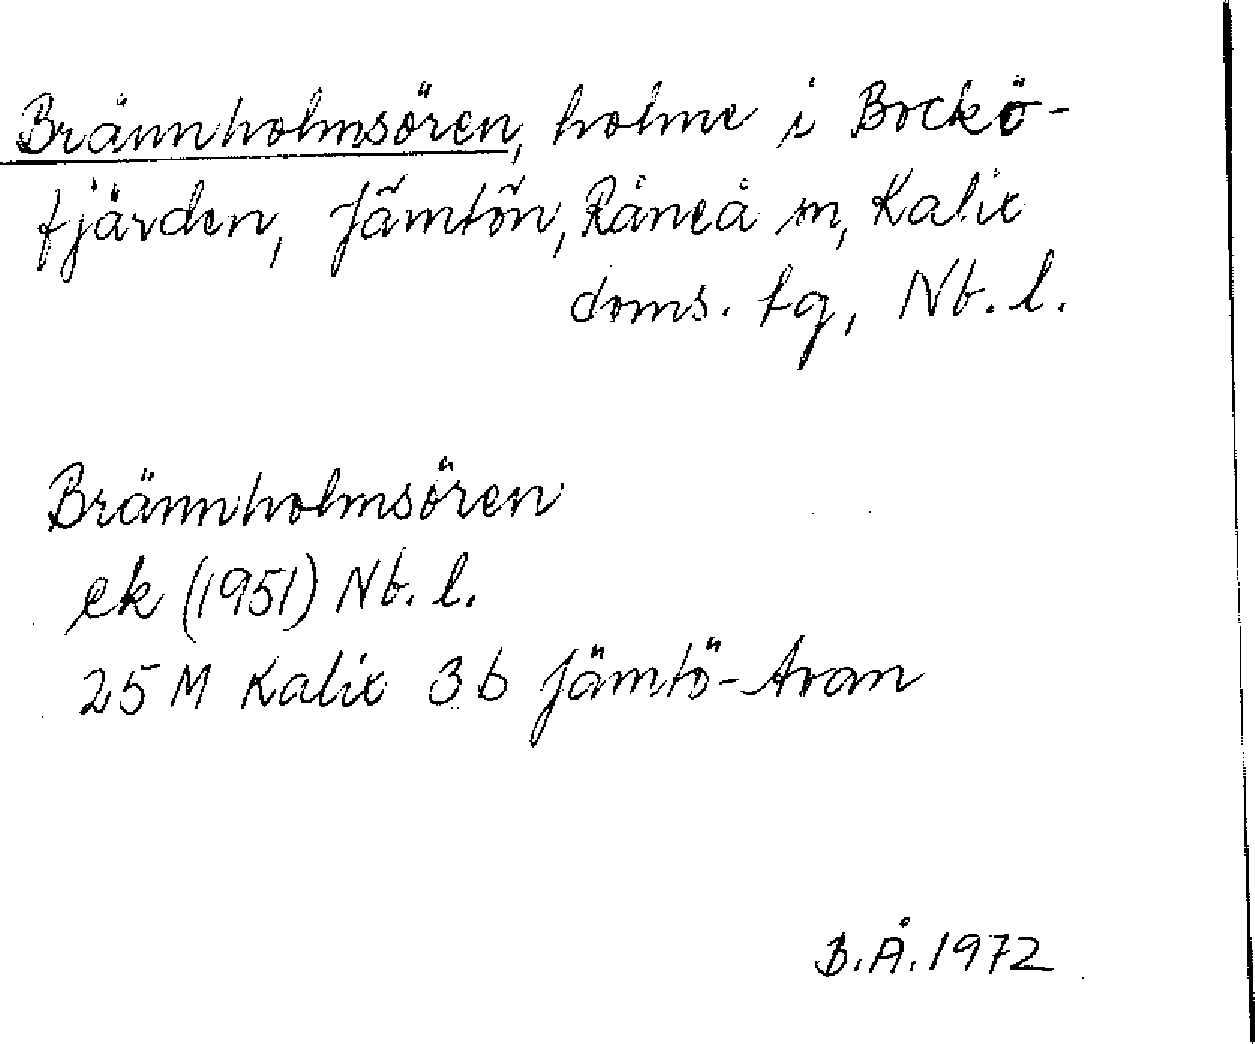 Brännholmsören, holme i Bockö-
fjärden, Jämtön, Råneå sn, Kalix
doms. tg, Nb. l.
Brännholmsören
ek (1951) Nb. l.
25 M Kalix 3b Jämtö-Avan
B.Å. 1972